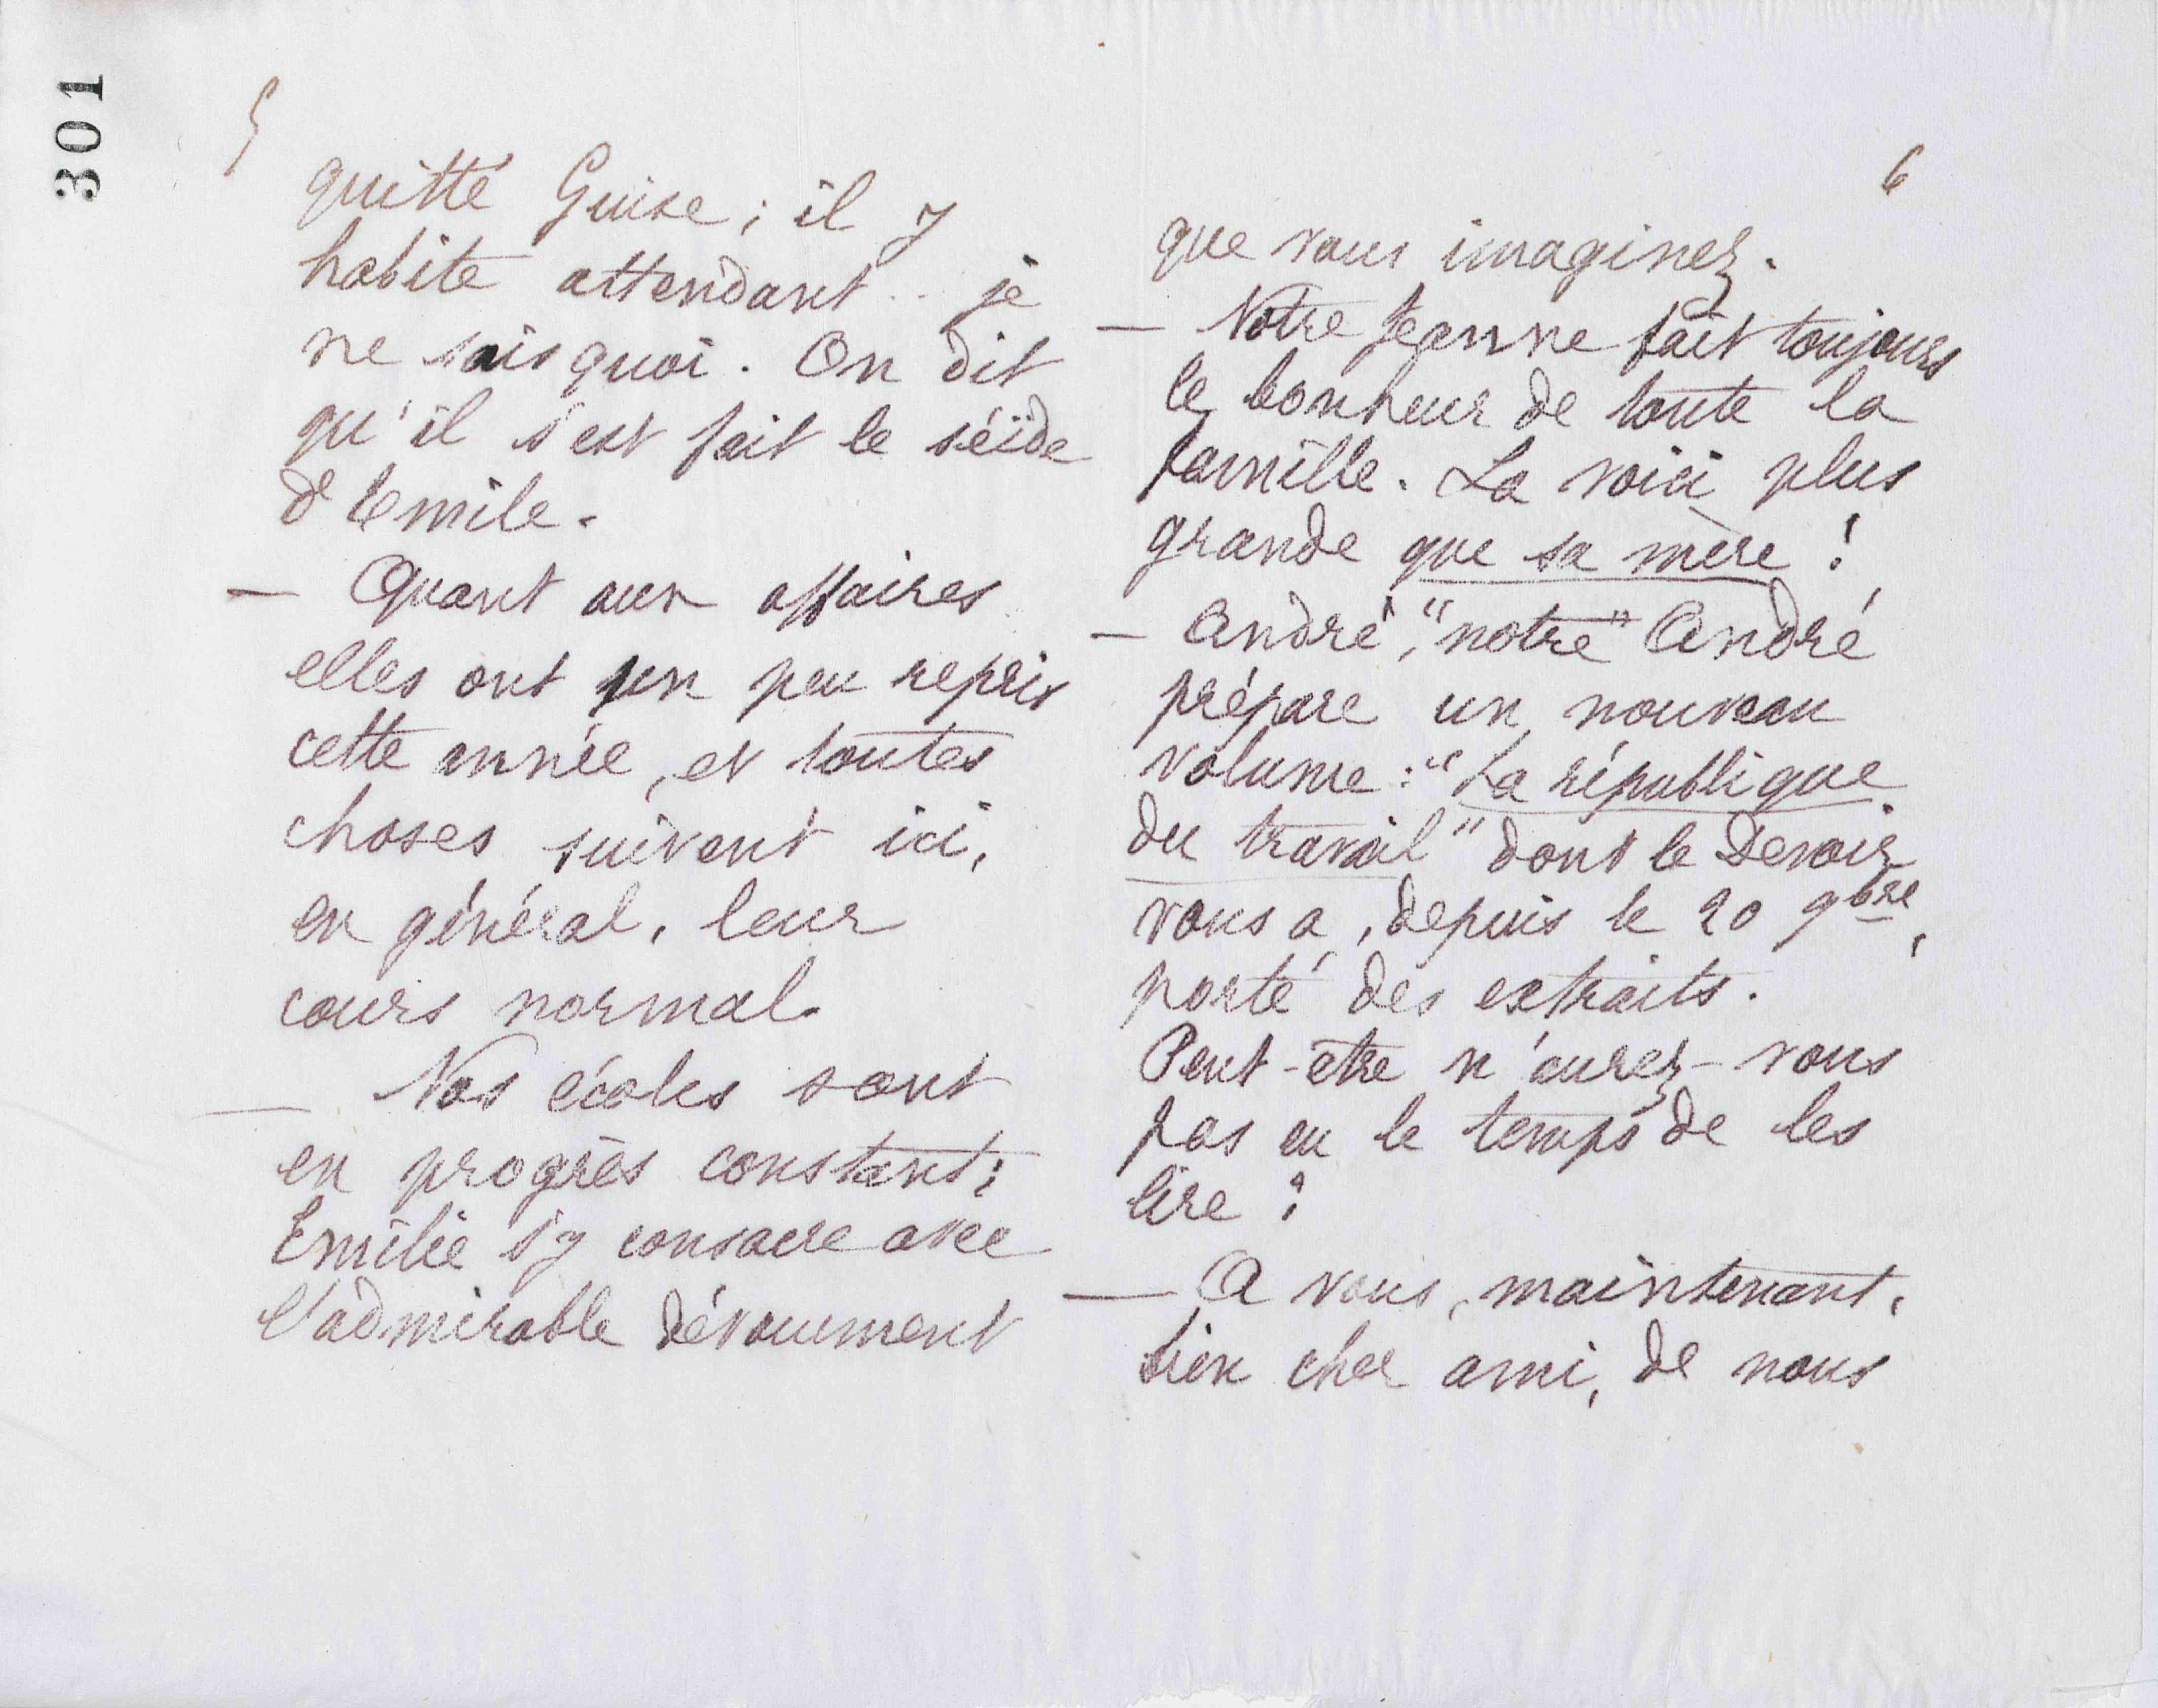 301
5
quitté Guise ; il y
habite attendant .. je
ne sais quoi. On dit
qu'il s'est fait le séïde
d'Emile.
— Quant aux affaires
elles ont un peu repris
cette année, et toutes
choses suivent ici,
en général, leur
cours normal.
— Nos écoles sont
en progrès constant ;
Emilie s'y consacre avec
l'admirable dévouement
6
que vous imaginez.
— Notre Jeanne fait toujours
le bonheur de toute la
famille. La voici plus
grande que sa mère !
— André, "notre" André
prépare un nouveau
volume : "La république
du travail" dont le Devoir
vous a, depuis le 20 9bre,
porté des extraits.
Peut-etre n'aurez-vous
pas eu le temps de les
lire ?
— A vous, maintenant,
bien cher ami, de nous